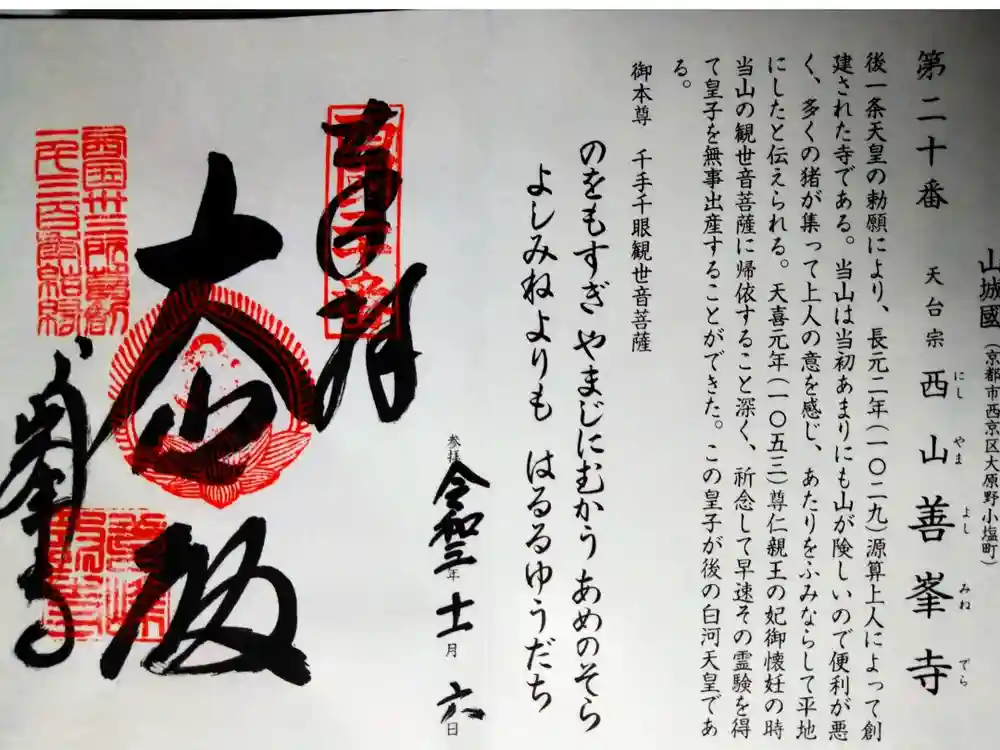 山城國（京都市西京区大原野小塩町）
第二十番　天台宗　西山善峯寺
にし　やま　よし　みね　でら
後一条天皇の勅願により、長元二年（一〇二九）源算上人によって創
建された寺である。当山は当初あまりにも山が険しいので便利が悪
く、多くの猪が集って上人の意を感じ、あたりをふみならして平地
にしたと伝えられる。天喜元年（一〇五三）尊仁親王の妃御懐妊の時
当山の観世音菩薩に帰依すること深く、祈念して早速その霊験を得
て皇子を無事出産することができた。この皇子が後の白河天皇であ
る。
御本尊　千手千眼観世音菩薩
のをもすぎ やまじにむかう あめのそら
よしみねよりも はるるゆうだち
参拝　令和三年　十一月　六日
奉拝
大悲殿